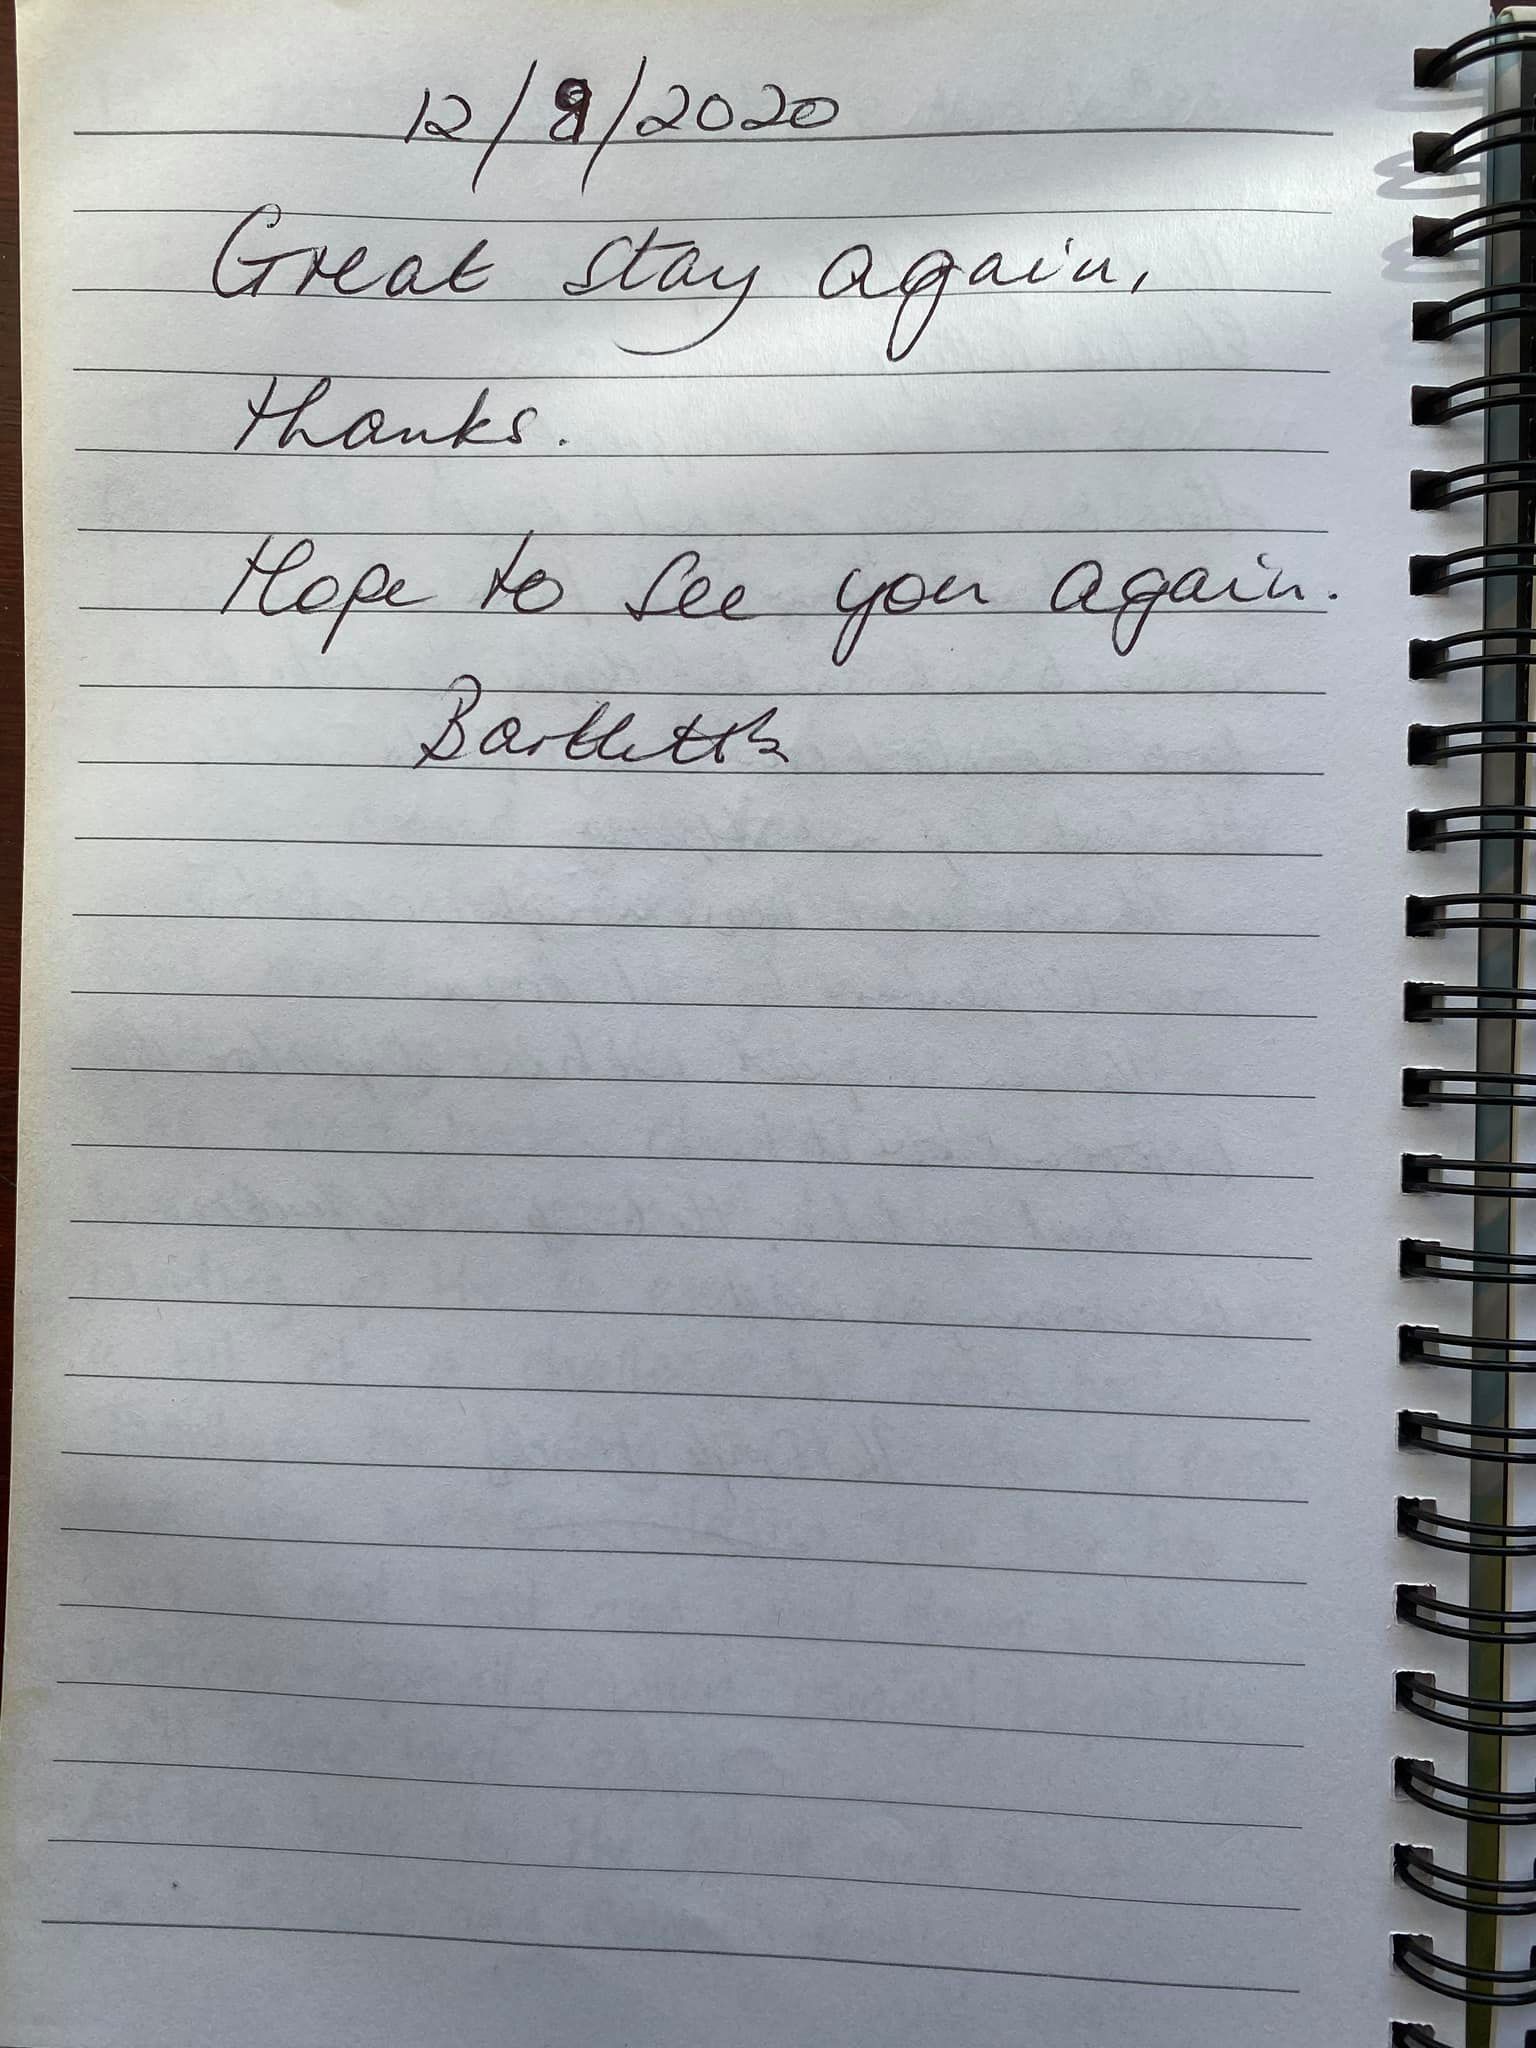 12/9/2020
Great stay again,
thanks.
Hope to see you again.
Bartletts